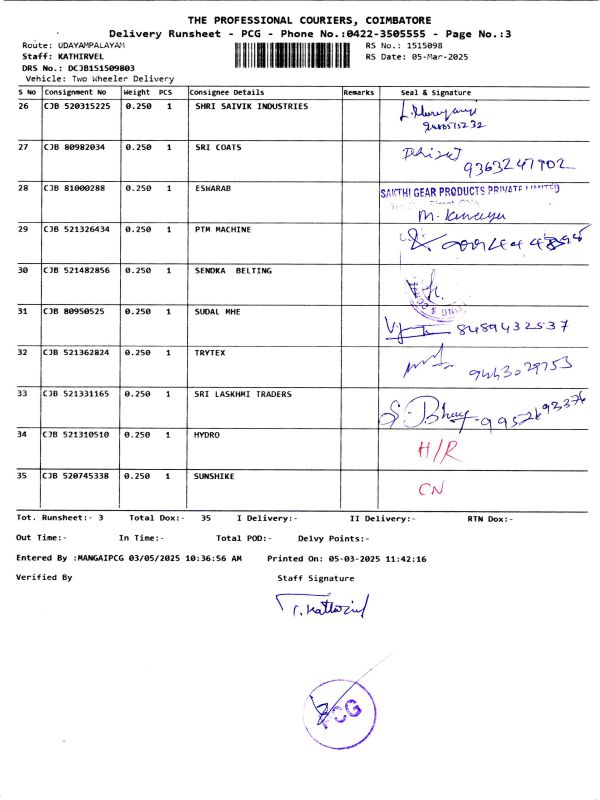 THE PROFESSIONAL COURIERS, COIMBATORE
Delivery Runsheet - PCG - Phone No.:0422-3505555 - Page No.:3
Route: UDAYAMPALAYAM RS No.: 1515098
Staff: KATHIRVEL RS Date: 05-Mar-2025
DRS No.: DCJB151509803
Vehicle: Two Wheeler Delivery
S No Consignment No Weight PCS Consignee Details Remarks Seal & Signature
26 CJB 520315225 0.250 1 SHRI SAIVIK INDUSTRIES
27 CJB 80982034 0.250 1 SRI COATS
9363247702
28 CJB 81000288 0.250 1 ESWARAB SAKTHI GEAR PRODUCTS PRIVATE LIMITED
29 CJB 521326434 0.250 1 PTM MACHINE
30 CJB 521482856 0.250 1 SENDKA BELTING
31 CJB 80950525 0.250 1 SUDAL MHE
8489432537
32 CJB 521362824 0.250 1 TRYTEX
9443029753
33 CJB 521331165 0.250 1 SRI LASKHMI TRADERS
34 CJB 521310510 0.250 1 HYDRO H/R
35 CJB 520745338 0.250 1 SUNSHIKE CN
Tot. Runsheet:- 3 Total Dox:- 35 I Delivery:- II Delivery:- RTN Dox:-
Out Time:- In Time:- Total POD:- Delvy Points:-
Entered By :MANGAIPCG 03/05/2025 10:36:56 AM Printed On: 05-03-2025 11:42:16
Verified By Staff Signature
PCG